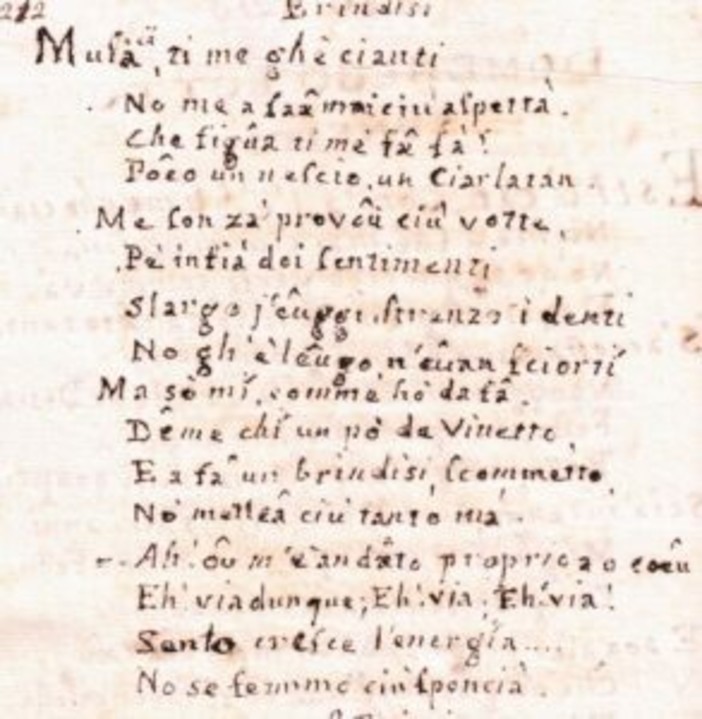 212 Brindisi
Musa, ti me ghè cianti
No me a faâ mai ciù aspettà.
Che figûa ti mè fâ fà!
Poêo un nescio, un Ciarlatan
Me son zà provòû ciù votte,
Pè infià doi sentimenti
Slargo j'êuggi, strenzo i denti
No gh'è lêugo n'êuan sciortî
Ma sò mí, comme hò da fâ.
Dême chì un pò de Vinetto,
E a fa un brindisi, scommetto,
No metteâ ciù tanto mà.
Ah! ôu m'è andâto proprio a o coêu
Eh! via dunque; Eh! via; Eh! via!
Sento cresce l'energía....
No se femmo ciù sponcià.